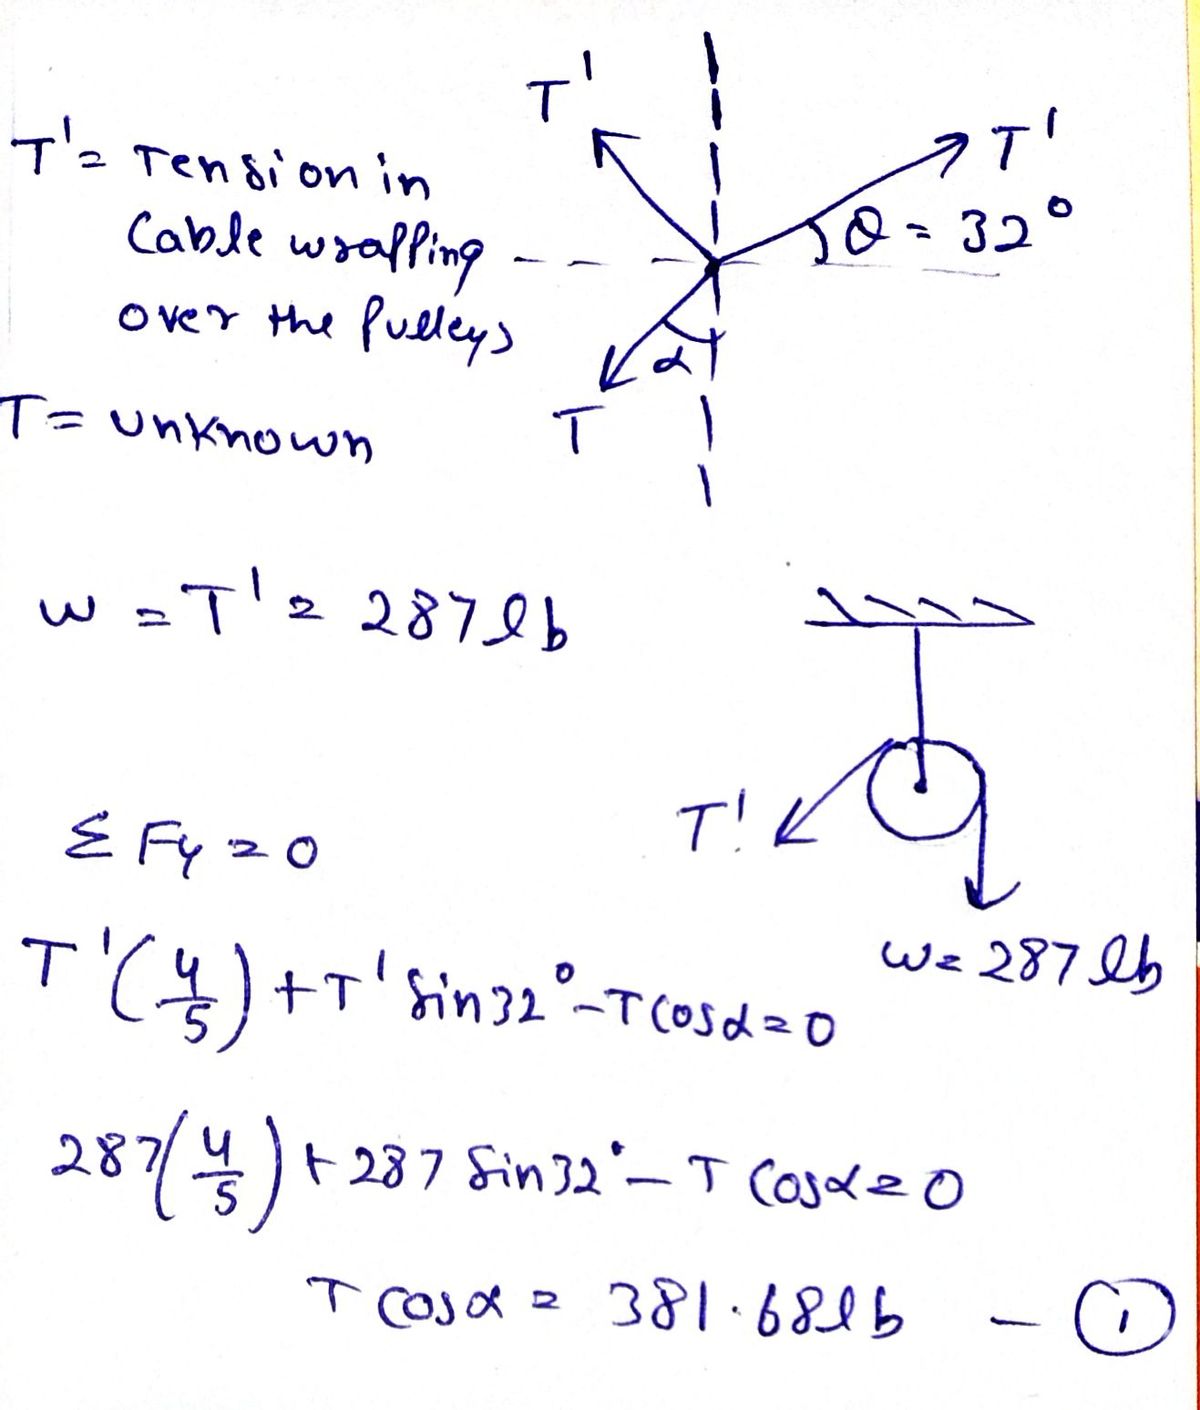 T'
T'
θ = 32°
T' = Tension in
Cable wrapping
over the pulleys
α
T
T = unknown
w = T' = 287 lb
T'
w = 287 lb
Σ Fy = 0
T'(4/5) + T' sin 32° - T cosα = 0
287(4/5) + 287 sin 32° - T cosα = 0
T cosα = 381.68 lb - ①